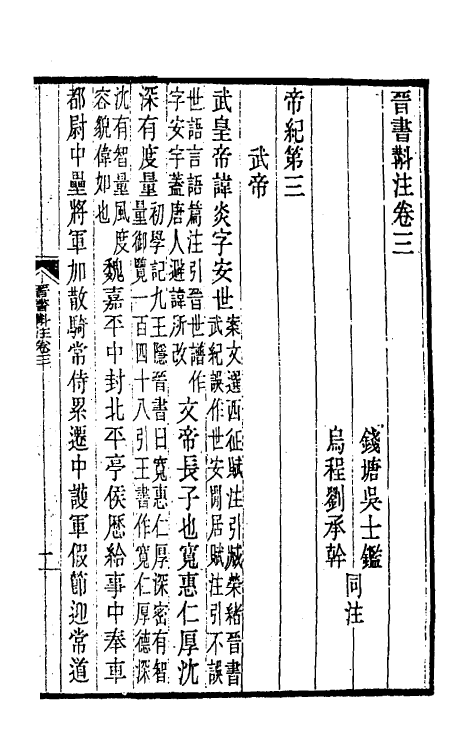 晉書斠注卷三
錢塘吳士鑑
烏程劉承幹
同注
帝紀第三
武帝
武皇帝諱炎字安世案文選西征賦注引臧榮緒晉書武紀誤作世安閒居賦注引不誤
世語言語篇注引晉世譜作字安宇蓋唐人避諱所改文帝長子也寬惠仁厚沈
深有度量初學記九王隱晉書曰寬惠仁厚深密有智量御覽一百四十八引王書作寬仁厚德深
沈有智量風度容貌偉如也魏嘉平中封北平亭侯歷給事中奉車
都尉中壘將軍加散騎常侍累遷中護軍假節迎常道
晉書斠注卷三
一